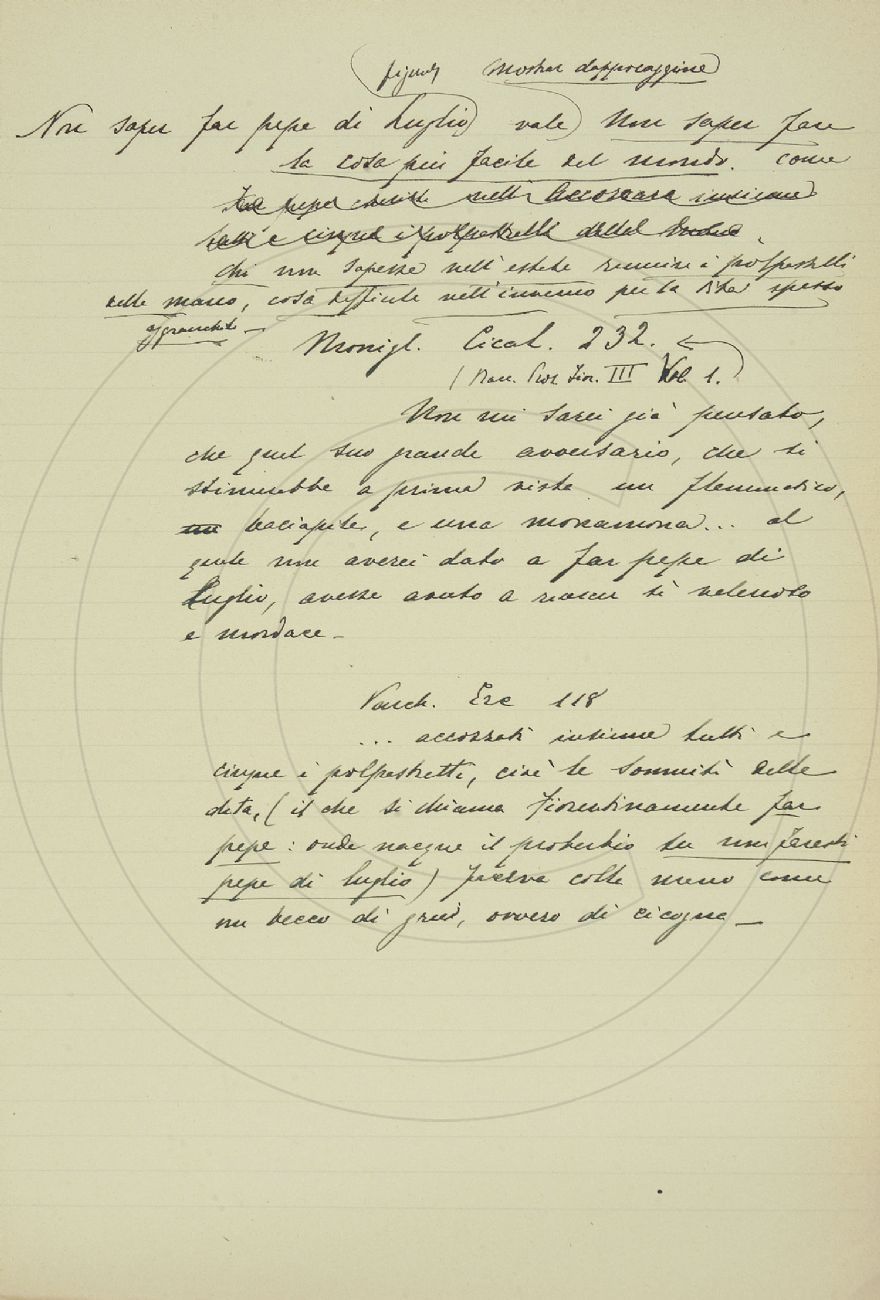 figurat mostrar dappocaggine
Non saper far pepe di Luglio vale Non saper fare
la cosa più facile del mondo. come
accozzare insieme
tutti e cinque i polpastrelli delle
chi non sapesse nell'estate riunire i polpastrelli
delle mano, cosa difficile nell'inverno per le dita spesso
aggranchite —
Monigl. Cical. 232.
(Racc. Pros. Fior. III Vol 1.
Non mi sarei già pensato,
che quel suo grande avversario, che si
stimerebbe a prima vista un flemmatico,
baciapile, e una monamona... al
quale non averei dato a far pepe di
Luglio, avesse avuto a riuscir sì velenoso
e mordace —
Varch. Erc 118
... accozzati insieme tutti e
cinque i polpastrelli, cioè le sommità delle
dita, (il che si chiama fiorentinamente far
pepe: onde nacque il proverbio tu non faresti
pepe di luglio) faceva colle mano come
un becco di grù, ovvero di cicogna —